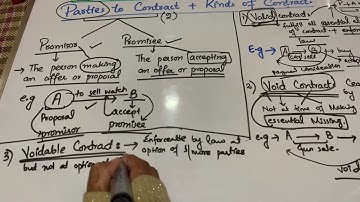 Parties to Contract + Kinds of Contract
(2)
Promisor
Promisee
→ The person making an offer or proposal
→ The person accepting an offer or proposal
e.g
A to sell watch B
Proposal
promisor
accept
promisee
3) Voidable Contract: → Enforceable by law at
option of 1/more parties
but not at option
1) Valid contract
fulfils all essential
of contract + enfor
E.g → A B
car sell
2) Void Contract
Not at time of Making
essential Missing
e.g → A
Gun sale.
Void